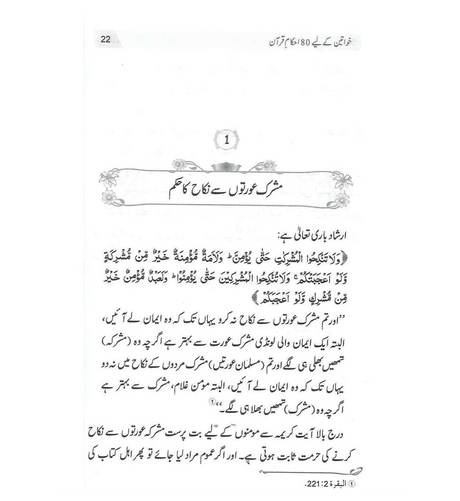 خواتین کے لیے 80 احکام قرآن 22
1
مشرک عورتوں سے نکاح کا حکم
ارشاد باری تعالیٰ ہے:
﴿وَلَا تَنْكِحُوا الْمُشْرِكٰتِ حَتّٰى يُؤْمِنَّ ؕ وَلَاَمَةٌ مُّؤْمِنَةٌ خَيْرٌ مِّنْ مُّشْرِكَةٍ
وَّلَوْ اَعْجَبَتْكُمْ ۚ وَلَا تُنْكِحُوا الْمُشْرِكِيْنَ حَتّٰى يُؤْمِنُوْا ؕ وَلَعَبْدٌ مُّؤْمِنٌ خَيْرٌ
مِّنْ مُّشْرِكٍ وَّلَوْ اَعْجَبَكُمْ﴾
’’اور تم مشرک عورتوں سے نکاح نہ کرو یہاں تک کہ وہ ایمان لے آئیں،
البتہ ایک ایمان والی لونڈی مشرک عورت سے بہتر ہے اگرچہ وہ (مشرکہ)
تمھیں بھلی ہی لگے اور تم (مسلمان عورتیں) مشرک مردوں کے نکاح میں نہ دو
یہاں تک کہ وہ ایمان لے آئیں، البتہ مؤمن غلام، مشرک سے بہتر ہے
اگرچہ وہ (مشرک) تمھیں بھلا ہی لگے۔‘‘①
درج بالا آیت کریمہ سے مومنوں کے لیے بت پرست مشرکہ عورتوں سے نکاح
کرنے کی حرمت ثابت ہوتی ہے۔ اور اگر عموم مراد لیا جائے تو پھر اہل کتاب کی
① البقرة 2:221.